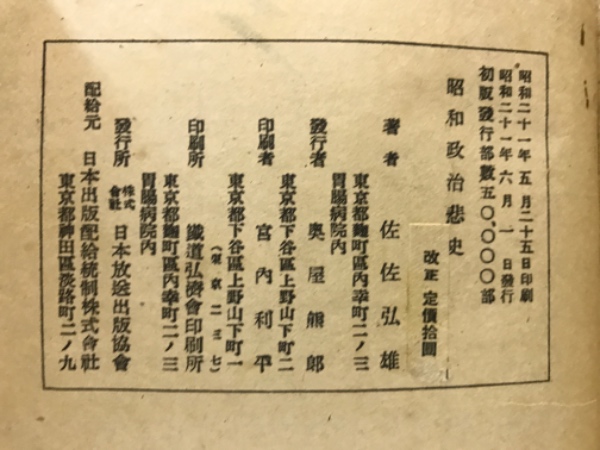 昭和二十一年五月二十五日印刷
昭和二十一年六月一日發行
初版發行部數五〇,〇〇〇部
昭和政治悲史
改正 定價拾圓
著者 佐佐弘雄
東京都麹町區內幸町二ノ三
胃腸病院內
發行者 奧屋熊郎
東京都下谷區上野山下町二
印刷者 宮內利平
東京都下谷區上野山下町一
(東京二三七)
印刷所 鐵道弘濟會印刷所
東京都麹町區內幸町二ノ三
胃腸病院內
發行所 株式會社 日本放送出版協會
配給元 日本出版配給統制株式會社
東京都神田區淡路町二ノ九